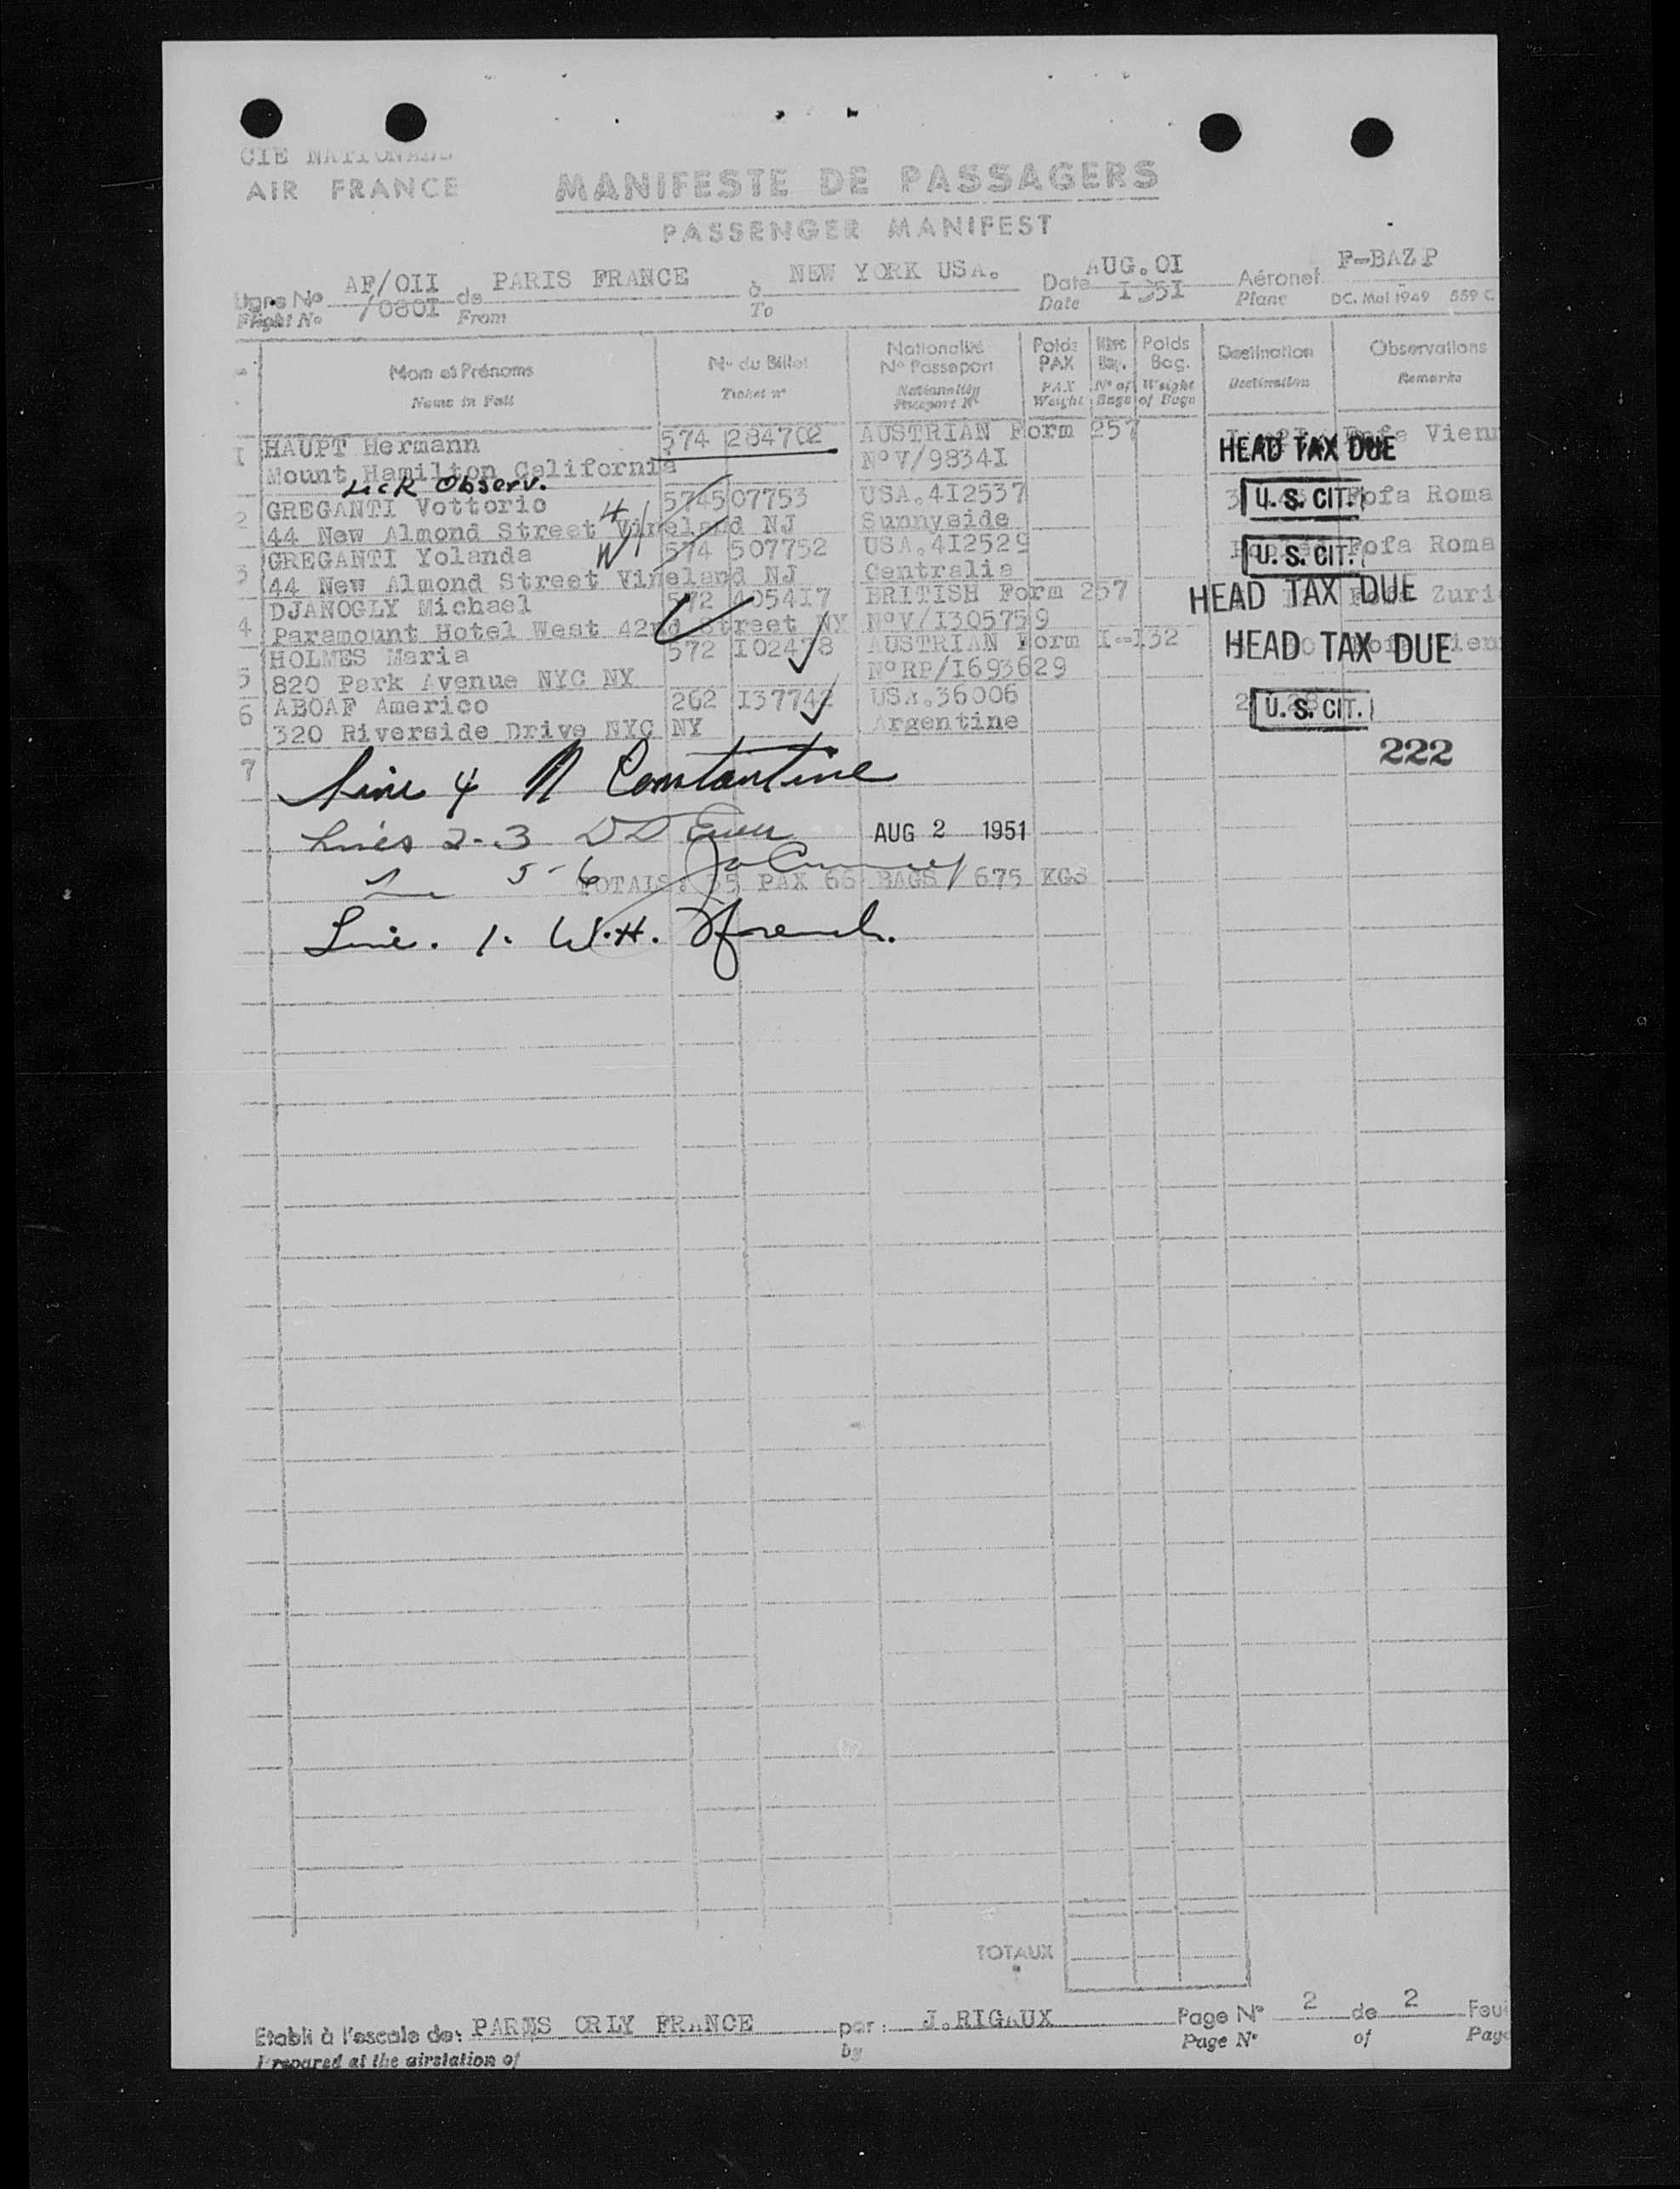 CIE NATIONALE
AIR FRANCE
MANIFESTE DE PASSAGERS
PASSENGER MANIFEST
Ligne No AF/OII /080I de PARIS FRANCE à NEW YORK USA. Date AUG.OI I951 Aéronef F-BAZP
Flight No From To Date Plane DC. Mai 1949 559 C
Nom et Prénoms N° du Billet Nationalité N° Passeport Poids PAX Nbre Bag. Poids Bag. Destination Observations
Name in Full Ticket n° Nationality Passport N° PAX Weight N° of Bags Weight of Bags Destination Remarks
I HAUPT Hermann 574 284702 AUSTRIAN Form 257 HEAD TAX DUE Fofa Vienn
Mount Hamilton California N°V/9834I
Lick Observ.
2 GREGANTI Vottorio 574507753 USA.4I2537 U.S. CIT. Fofa Roma
44 New Almond Street Vineland NJ Sunnyside
3 GREGANTI Yolanda 574 507752 USA.4I2529 U.S. CIT. Fofa Roma
44 New Almond Street Vineland NJ Centralia
4 DJANOGLY Michael 572 4054I7 BRITISH Form 257 HEAD TAX DUE Zuri
Paramount Hotel West 42nd Street NY N°V/I305759
5 HOLMES Maria 572 I02478 AUSTRIAN Form I-I32 HEAD TAX DUE
820 Park Avenue NYC NY N°RP/I693629
6 ABOAF Americo 262 I37742 USA.36006 U.S. CIT.
320 Riverside Drive NYC NY Argentine
7 222
Line 4 N Constantine
Lines 2-3 DD AUG 2 1951
5-6
TOTALS: 35 PAX 66 BAGS / 675 KGS
Line. 1. W.H. French.
TOTAUX
Etabli à l'escale de: PARIS ORLY FRANCE par: J.RIGAUX Page N° 2 de 2 Feui
Prepared at the airstation of by Page N° of Page